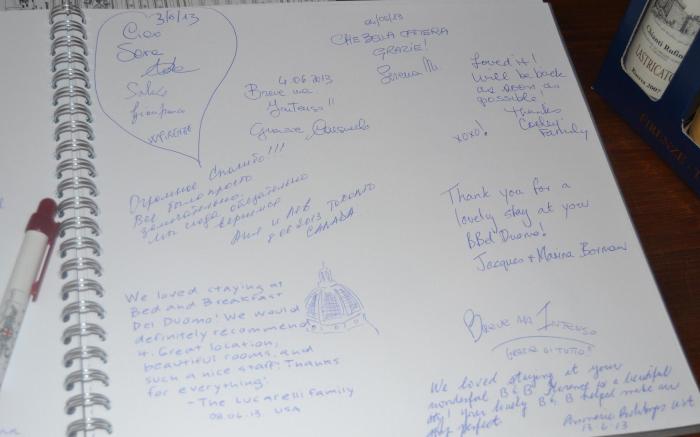 3/6/13
Ciao
Sara
4.06.2013
Breve ma
Intenso!!
Grazie
CHE BELLA CAMERA
GRAZIE!
Serena M.
Loved it!
Will be back
as soon as
possible!
Thanks
Family
xoxo!
Огромное Спасибо!!!
Все было просто
замечательно.
Мы сюда обязательно
вернемся
Аня и Лев TORONTO
2013
CANADA
Thank you for a
lovely stay at your
BBdDuomo!
Jacques + Marina Borman
We loved staying at
Bed and Breakfast
Del Duomo! We would
definitely recommend
it. Great location,
beautiful rooms, and
such a nice staff! Thanks
for everything!
- The Lucarelli Family
08.06.13. USA
BREVE MA INTENSO
GRAZIE DI TUTTO!
We loved staying at your
wonderful B & B. Florence is a beautiful
city! Your lovely B & B helped make our
stay perfect.
13.6.13
Chianti Rufina
LASTRICATO
Riserva 2007
FIRENZE